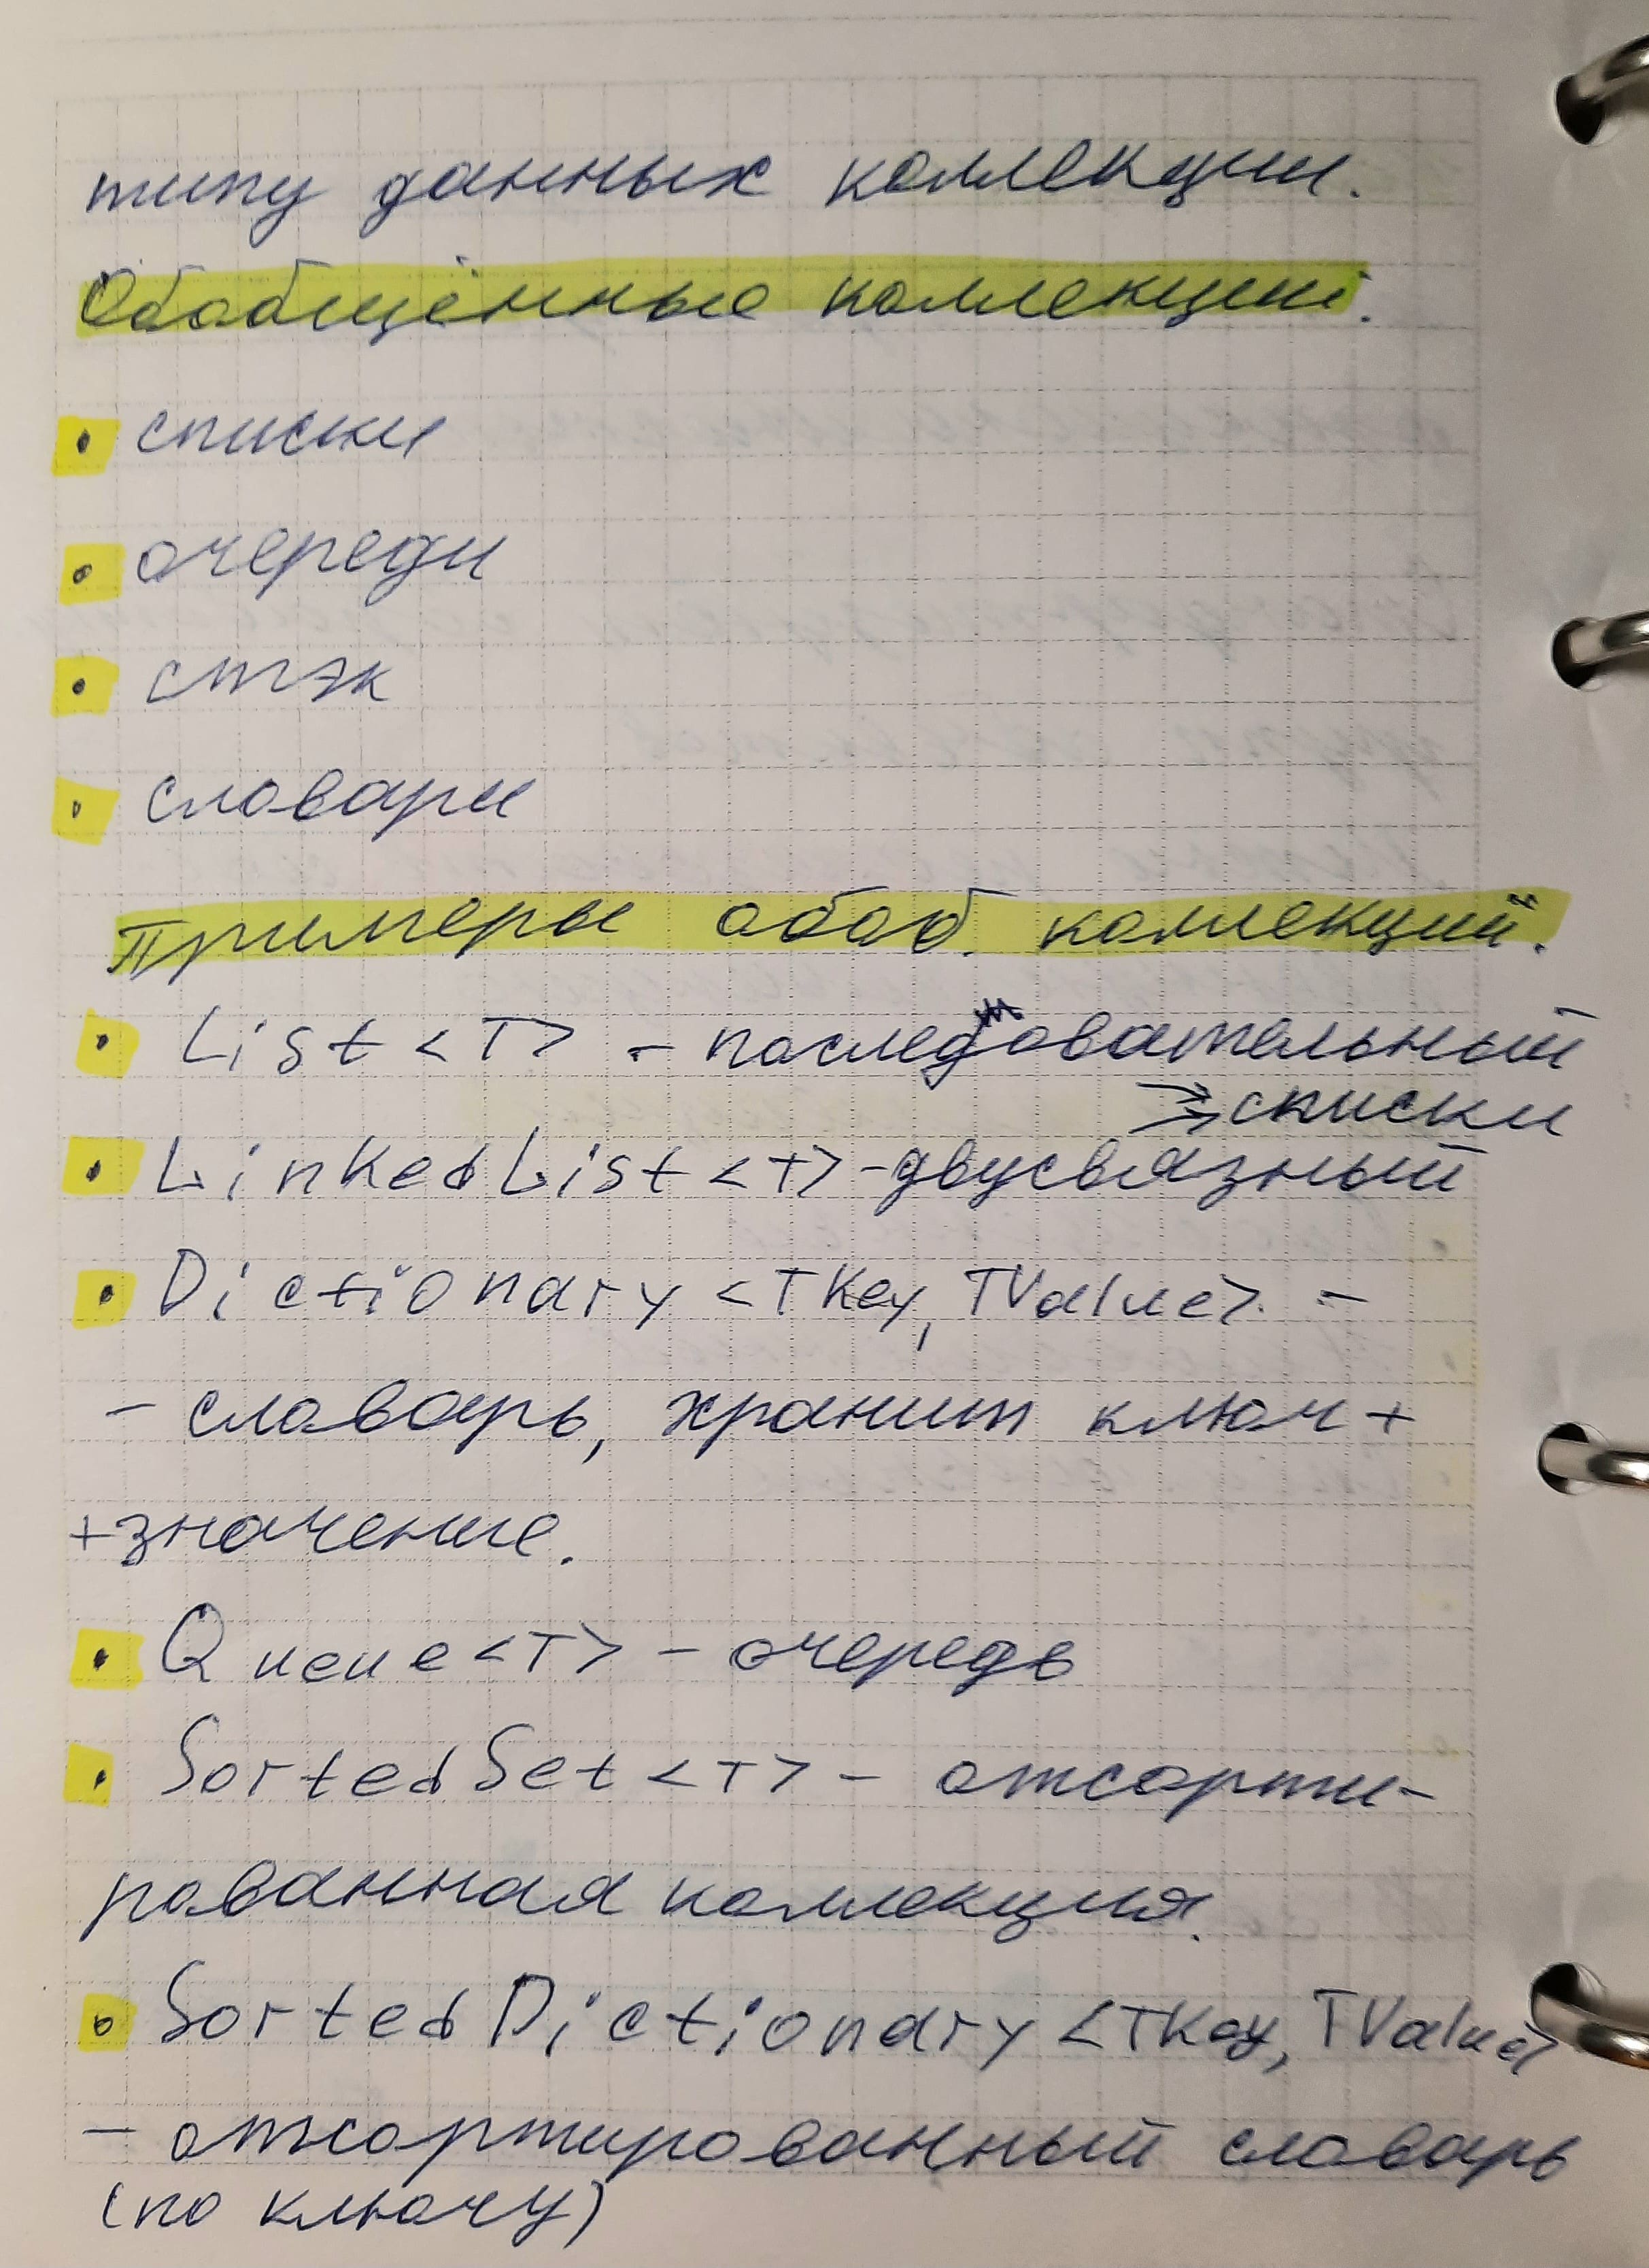 типу данных коллекции.
Обобщённые коллекции.
• списки
• очереди
• стэк
• словари
Примеры обоб. коллекций.
• List <T> - последовательный
⇉ списки
• LinkedList <T> - двусвязный
• Dictionary <TKey, TValue> -
- словарь, хранит ключ +
+ значение.
• Queue <T> - очередь
• SortedSet <T> - отсорти-
рованная коллекция.
• SortedDictionary <TKey, TValue>
- отсортированный словарь
(по ключу)